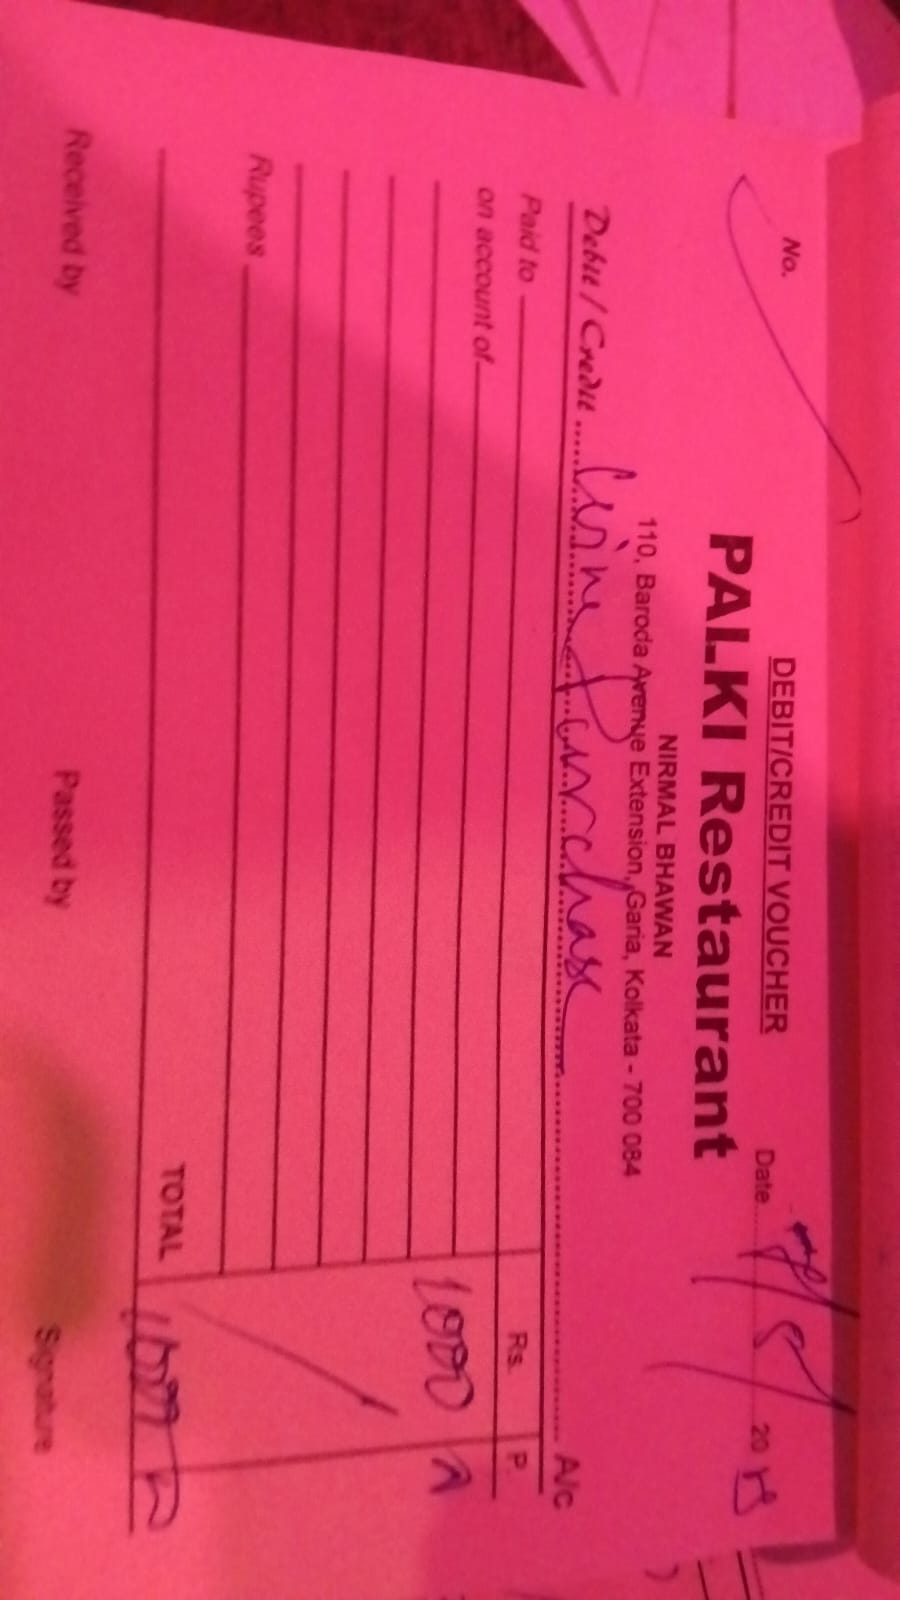 DEBIT/CREDIT VOUCHER
No. Date
PALKI Restaurant
20
NIRMAL BHAWAN
110, Baroda Avenue Extension, Garia, Kolkata - 700 084
Debit / Credit Purchase A/c
Paid to Rs. P.
on account of
1000
Rupees
TOTAL
Received by Passed by Signature